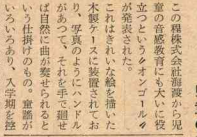 この程株式会社海渡から児
童の音感教育にも大いに役
立つという〝オンゴール〟
が発表された。
これはきれいな絵を描いた
木製ケースに装置されてお
り、写真のようにハンドル
があつて、それを手で廻せ
ば自然に曲が奏せられると
いう仕掛けのもの。童謡が
いろいろあり、入学期を控